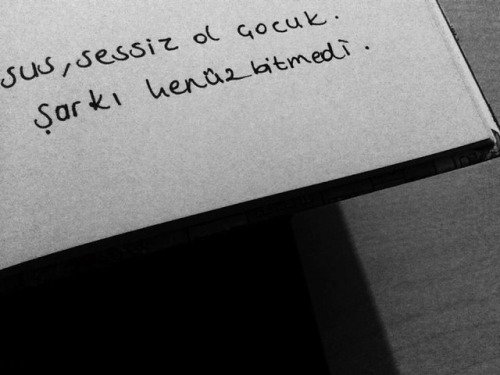 sus, sessiz ol çocuk.
Şarkı henüz bitmedi.